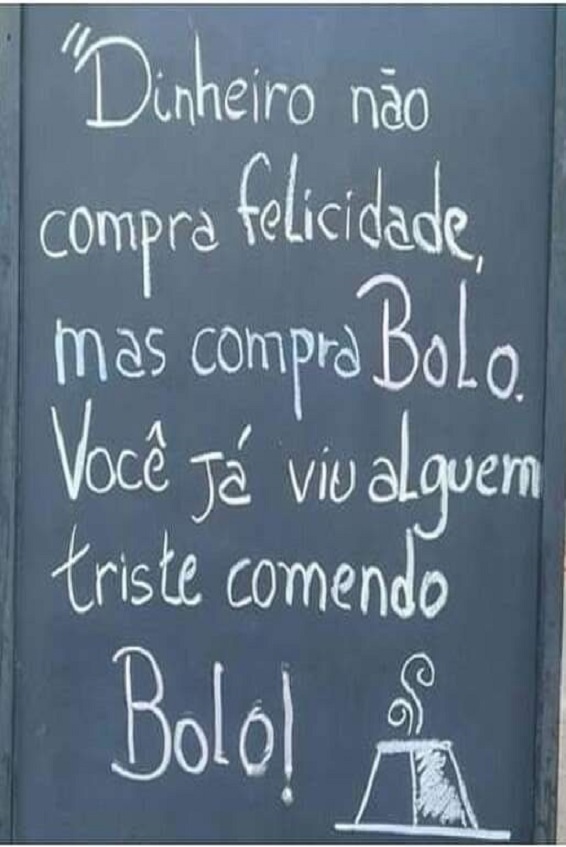 "Dinheiro não
compra felicidade,
mas compra Bolo.
Você já viu alguem
triste comendo
Bolo!